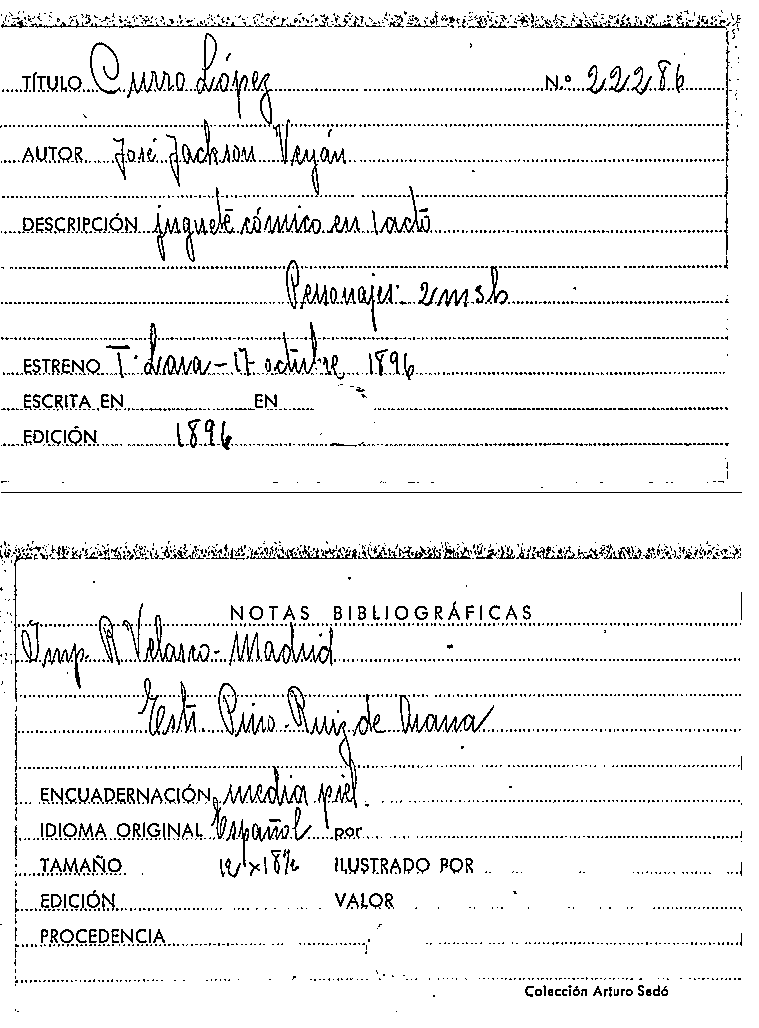 TÍTULO Curro López N.º 22286
AUTOR José Jackson Veyán
DESCRIPCIÓN juguete cómico en 1 acto
Personajes: 2m 3h
ESTRENO T. Lara - 17 octubre 1896
ESCRITA EN EN
EDICIÓN 1896
NOTAS BIBLIOGRÁFICAS
Imp. R Velasco - Madrid
Estr. Pino - Ruiz de Arana
ENCUADERNACIÓN media piel.
IDIOMA ORIGINAL Español por
TAMAÑO ILUSTRADO POR
EDICIÓN VALOR
PROCEDENCIA
Colección Arturo Sedó